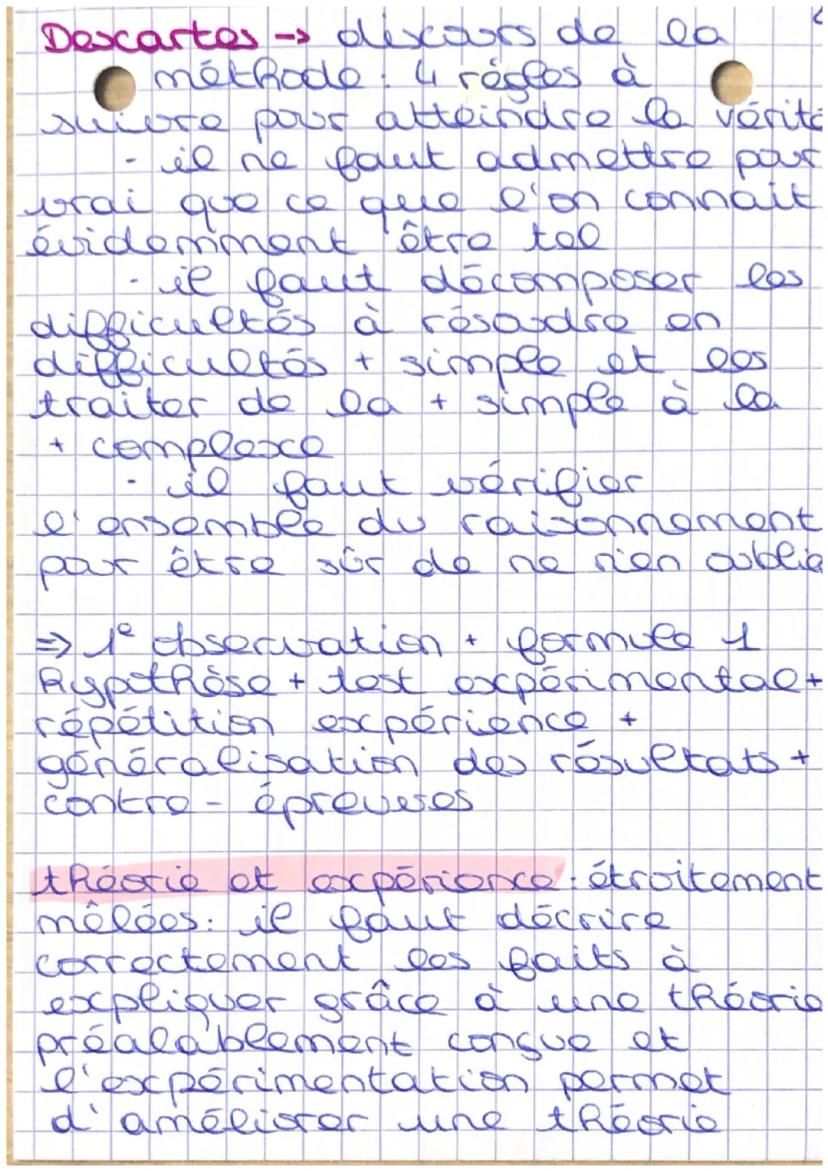 Descartes → discours de la
méthode : 4 règles à
suivre pour atteindre la vérité
- il ne faut admettre pour
vrai que ce que l'on connait
évidemment être tel
- il faut décomposer les
difficultés à résoudre en
difficultés + simple et les
traiter de la + simple à la
+ complexe
- il faut vérifier
l'ensemble du raisonnement
pour être sûr de ne rien oublie
⇒ 1e observation + formule 1
hypothèse + test expérimental +
répétition expérience +
généralisation des résultats +
contre-épreuves
théorie et expérience : étroitement
mêlées : il faut décrire
correctement les faits à
expliquer grâce à une théorie
préalablement conçue et
l'expérimentation permet
d'améliorer une théorie